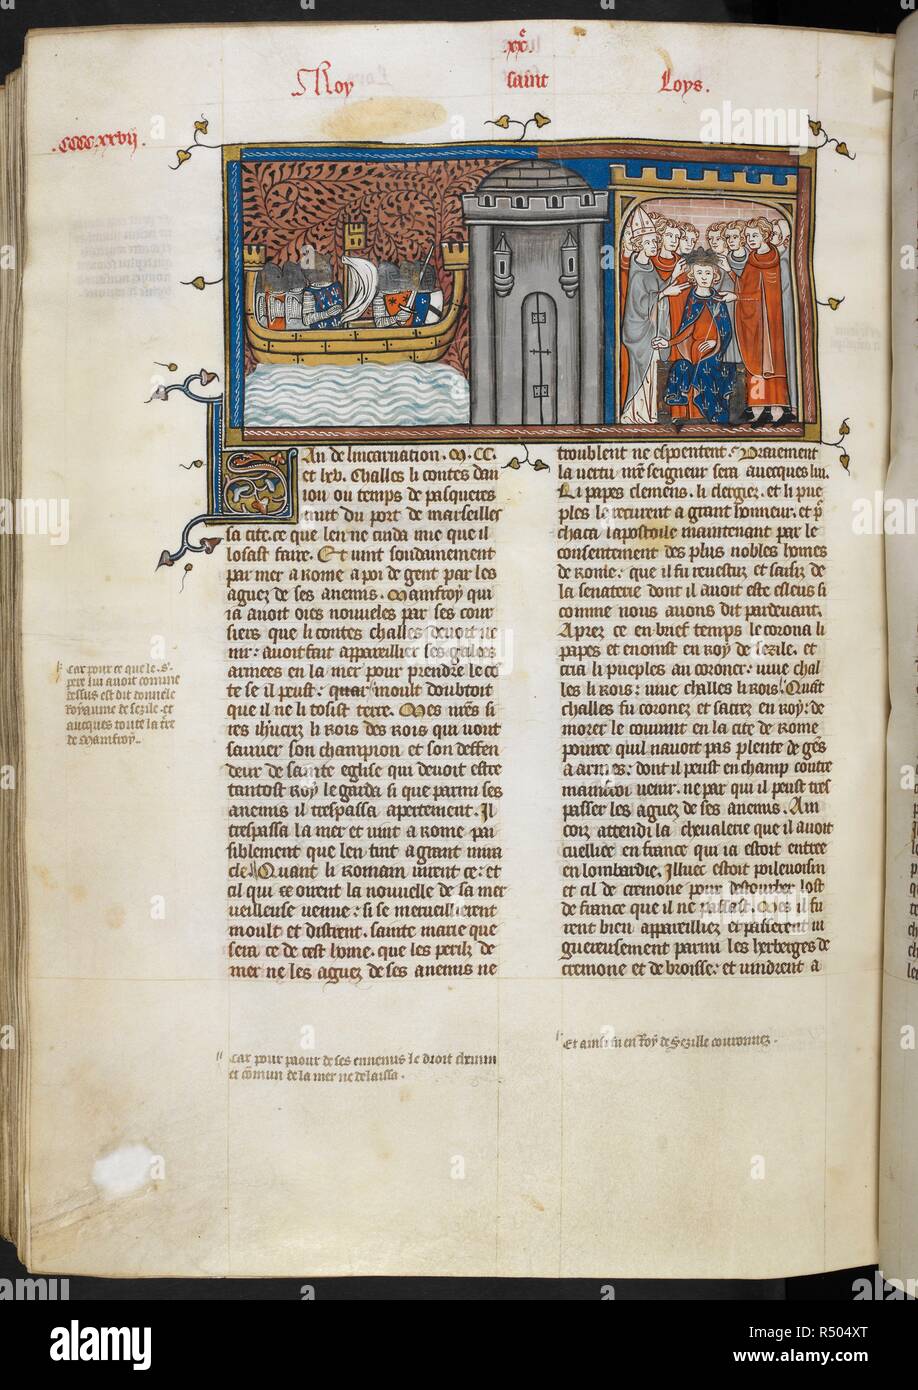 .xx.e
Roy saint Loys.
.CCCC.xxvij.
An de lincarnation. M. CC.
et lxv. Challes li contes dan
iou ou temps de pasqueres
mut du port de marseilles
sa cite. ce que len ne cuida mie que il
losast faire. Et vint soudainement
par mer a Rome a poi de gent par les
aguez de ses anemis. Mamfroy qui
ia auoit oies nouueles par ses cour
siers que li contes challes deuoit ve
nir: auoit fait appareillier ses galies
armees en la mer pour prendre le con
te se il peust: quar moult doubtoit
que il ne li tosist terre. Mes nrēs si
res ihūcriz li Rois des Rois qui vout
sauuer son champion et son deffen
deur de sainte eglise qui deuoit estre
tantost Roy le garda si que parmi ses
anemis il trespassa apertement. Il
trespassa la mer et vint a Rome pai
siblement que len tint a grant mira
cle. Quant li Romain virent ce: et
cil qui oirent la nouuelle de sa mer
ueilleuse venue: si se merueillierent
moult et distrent. sainte marie que
sera ce de cest home. que les perilz de
mer ne les aguez de ses anemis ne
troublent ne espoentent. Vraiement
la vertu nr̄e seigneur sera auecques lui.
Li papes clemens. li clergiez. et li pue
ples le recurent a grant honneur. et p̄
chaca lapostoile maintenant par le
consentement des plus nobles homes
de Rome: que il fu reuestuz et saisiz de
la senaterie dont il auoit este esleus si
comme nous auons dit pardeuant.
Aprez ce en brief temps le corona li
papes et enoinst en Roy de sezile. et
cria li pueples au coroner: viue chal
les li Rois: viue challes li Rois. Quāt
challes fu coronez et sacrez en Roy: de
morer le couuint en la cite de Rome
pource quil nauoit pas plente de gēs
a armes: dont il peust en champ contre
mainfroi venir. ne par qui il peust tres
passer les aguez de ses anemis. Ain
coiz attendi la cheualerie que il auoit
cueilliee en france qui ia estoit entree
en lombardie. Illuec estoit poileuoisin
et cil de cremone pour destourber lost
de france que il ne passast. Mes il fu
rent bien appareilliez et passerent vi
guereusement parmi les herberges de
cremone et de broisse: et vindrent a
car pour ce que le .s.
pere lui auoit comme
dessus est dit donne le
Royaume de sezile. et
auecques toute la t̄re
de Mamfroy..
car pour paour de ses ennemis le droit chemin
et cōmun de la mer ne delaissa.
Et ainsi fu en Roy de Sezille couronnez.
alamy
alamy
Image ID: R504XT
www.alamy.com